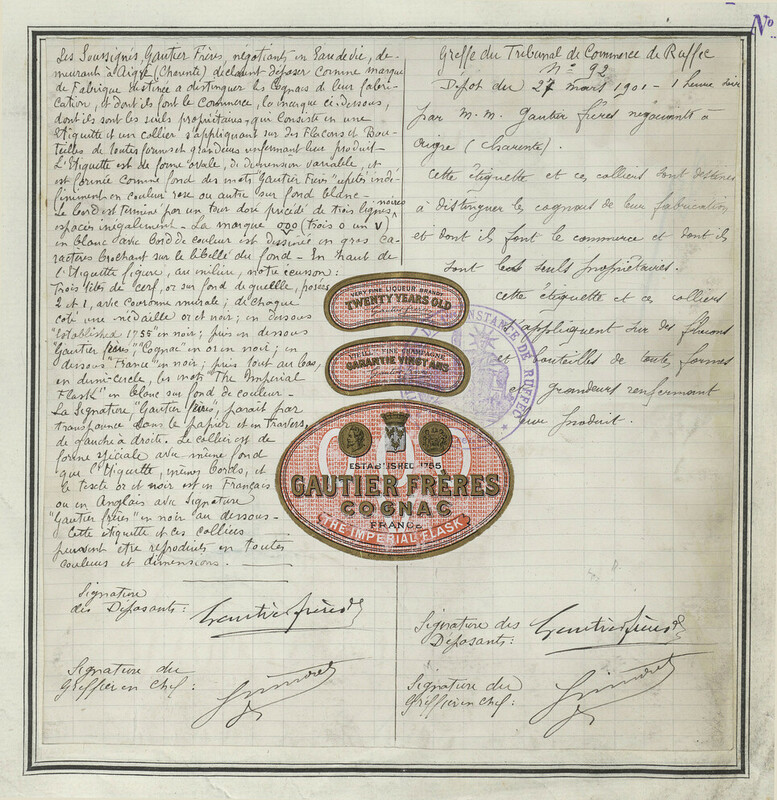 No
Les Soussignés Gautier Frères, négociants en Eau de vie, de-
meurant à Aigre (Charente) déclarent déposer comme marque
de Fabrique destinée à distinguer les Cognacs de leur fabri-
cation, et dont ils font le Commerce, la marque ci-dessous,
dont ils sont les seuls propriétaires, qui consiste en une
Etiquette et un collier s'appliquant sur des Flacons et Bou-
teilles de toutes formes et grandeurs renfermant leur produit.
L'Etiquette est de forme ovale, de dimension variable, et
est formée comme fond des mots "Gautier Frères" répétés indé-
finiment en couleur rose ou autre sur fond blanc -
Le bord est terminé par un tour doré précédé de trois lignes noires
espacées inégalement. - La marque 000 (trois 0 un V)
en blanc avec bord de couleur est dessinée en gros ca-
ractères brochant sur le libellé du fond - En haut de
l'Etiquette figure, au milieu, notre écusson :
Trois têtes de cerf, or sur fond de gueulle, posées
2 et 1, avec couronne murale ; de chaque
coté une médaille or et noir ; en dessous
"Established 1755" en noir ; puis en dessous
"Gautier frères", "Cognac" en or et noir ; en
dessous "France" en noir ; puis tout au bas,
en demi-cercle, les mots "The Imperial
Flask" en blanc sur fond de couleur -
La Signature, "Gautier frères", parait par
transparence dans le papier et en travers,
de gauche à droite. Le collier est de
forme spéciale avec même fond
que l'Etiquette, mêmes bords, et
le texte or et noir est en Français
ou en Anglais avec signature
"Gautier frères" en noir au dessous -
Cette étiquette et ces colliers
peuvent être reproduits en toutes
couleurs et dimensions.
Signature
des Déposants :
Gautier frères
Signature du
Greffier en Chef :
Greffe du Tribunal de Commerce de Ruffec
No 92
Dépot du 27 mars 1901 - 1 heure soir
par M.M. Gautier frères négociants à
Aigre (Charente).
Cette étiquette et ces colliers sont destinés
à distinguer les cognacs de leur fabrication
et dont ils font le commerce et dont ils
sont les seuls propriétaires.
Cette étiquette et ces colliers
s'appliquent sur des flacons
et bouteilles de toutes formes
et grandeurs renfermant
leur produit.
Signature des
Déposants :
Gautier frères
Signature du
Greffier en Chef :
VERY FINE LIQUEUR BRANDY
TWENTY YEARS OLD
Gautier frères
VIEILLE FINE CHAMPAGNE
GARANTIE VINGT ANS
Gautier frères
INSTANCE DE RUFFEC
ESTABLISHED 1755
GAUTIER FRÈRES
COGNAC
FRANCE
THE IMPERIAL FLASK